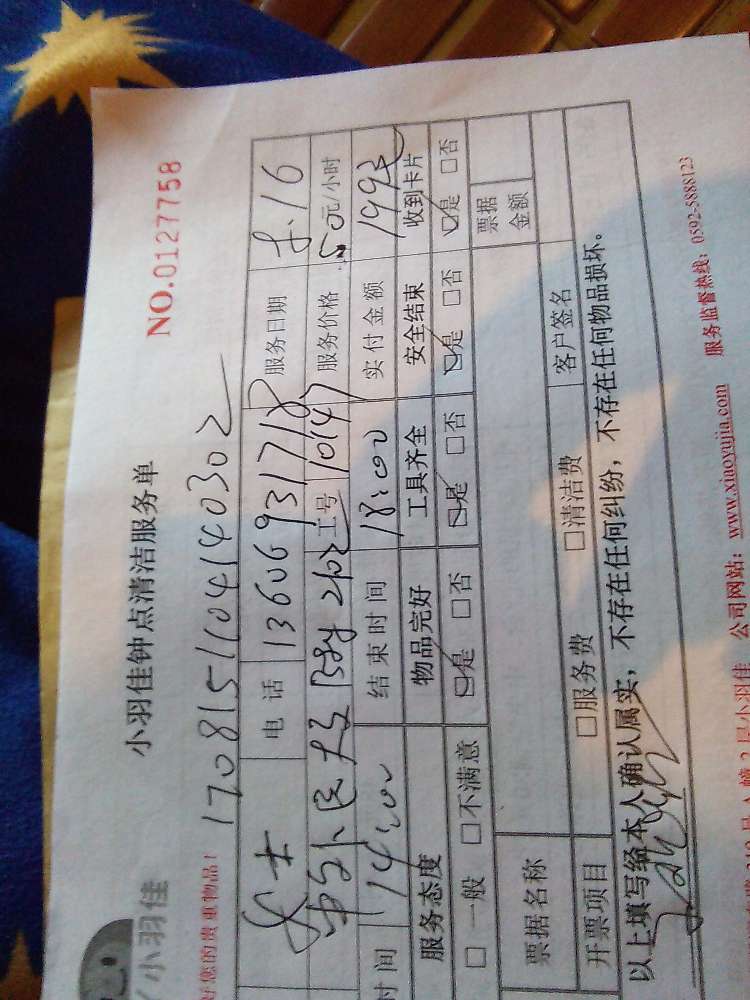 小羽佳钟点清洁服务单
NO.0127758
好您的贵重物品！ 1708151104140302
女士 电话 13606931718 服务日期 8.16
2102 工号 10147 服务价格 50元/小时
时间 14:00 结束时间 18:00 实付金额 199元
服务态度 物品完好 工具齐全 安全结束 收到卡片
□一般 □不满意 ☑是 □否 ☑是 □否 ☑是 □否 ☑是 □否
票据名称 票据金额
开票项目 □服务费 □清洁费 客户签名
以上填写经本人确认属实，不存在任何纠纷，不存在任何物品损坏。
2层小羽佳 公司网站：www.xiaoyujia.com 服务监督热线：0592-5888123
小羽佳